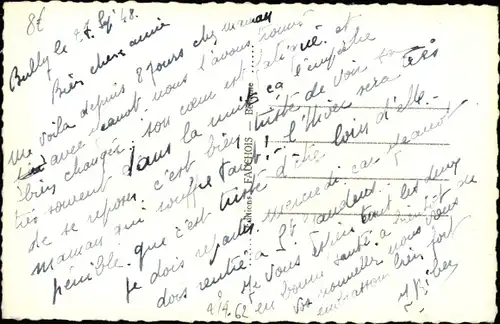 86
Bully le 27 Sept 48.
Bien chers amis
me voilà depuis 8 jours chez maman
avec Jeannot. nous l'avons trouvé
bien changée, son cœur est fatigué et
très souvent dans la nuit ça l'empêche
de se reposer, c'est bien triste de voir sa
maman qui souffre tant! l'hiver sera très
pénible. que c'est triste d'être loin d'elle.
je dois repartir mercredi car Jeannot
dois rentré à St
Je vous espère tous les deux
en bonne santé à bientôt de
vos nouvelles nous vous
embrassons bien fort
62
Editions FAUCHOIS